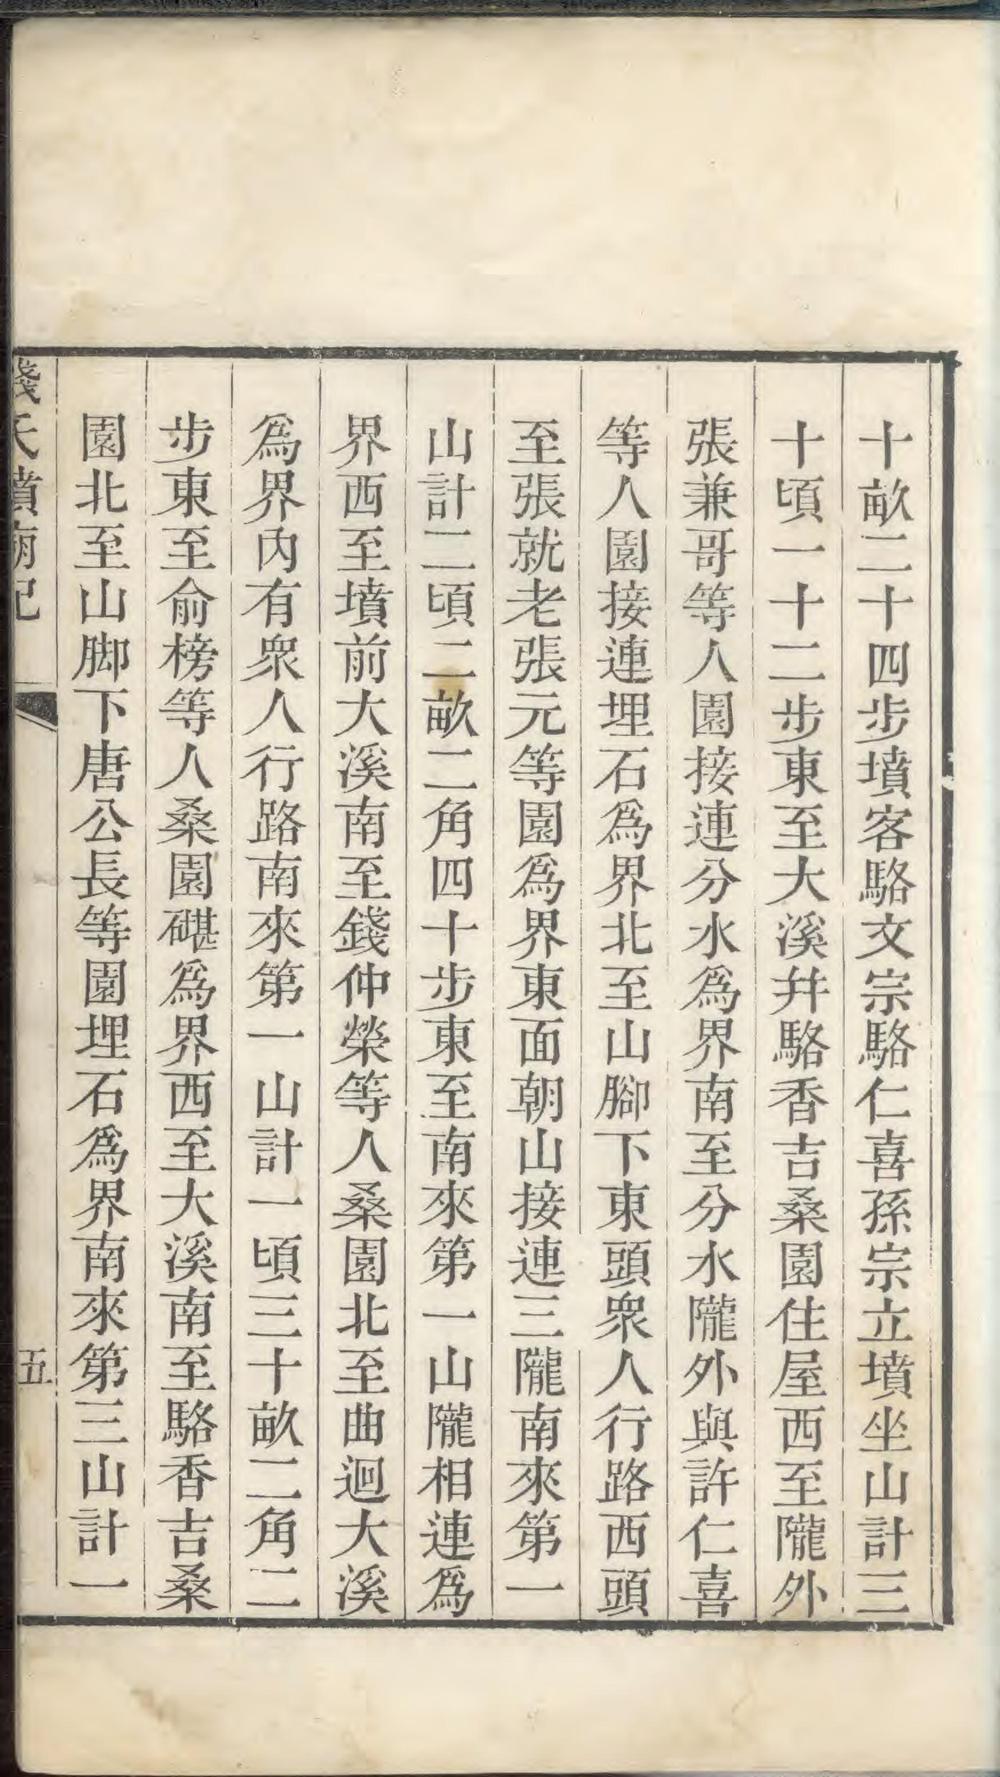 十畝二十四步墳客駱文宗駱仁喜孫宗立墳坐山計三
十頃一十二步東至大溪幷駱香吉桑園住屋西至隴外
張兼哥等人園接連分水爲界南至分水隴外與許仁喜
等人園接連埋石爲界北至山腳下東頭衆人行路西頭
至張就老張元等園爲界東面朝山接連三隴南來第一
山計二頃二畝二角四十步東至南來第一山隴相連爲
界西至墳前大溪南至錢仲榮等人桑園北至曲迴大溪
爲界內有衆人行路南來第一山計一頃三十畝二角二
步東至俞榜等人桑園磡爲界西至大溪南至駱香吉桑
園北至山脚下唐公長等園埋石爲界南來第三山計一
錢氏墳廟記
五